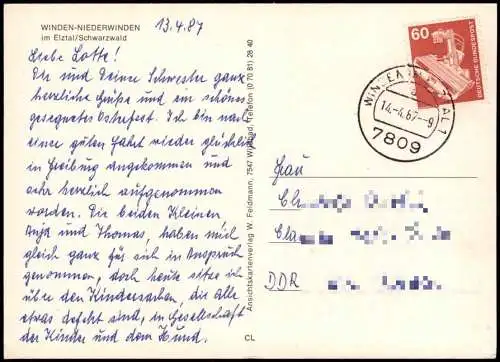 WINDEN-NIEDERWINDEN
im Elztal/Schwarzwald
13.4.87
Liebe Lotte!
Dir und Deiner Schwester ganz
herzliche Grüße und ein schönes
gesegnetes Osterfest. Ich bin nach
einer guten Fahrt wieder glücklich
in Freiburg angekommen und
sehr herzlich aufgenommen
worden. Die beiden Kleinen
Anja und Thomas, haben mich
gleich ganz für sich in Anspruch
genommen, doch heute sitze ich
über den Kindersachen, die alle
etwas defekt sind, in Gesellschaft
der Kinder und dem Hund.
Ansichtskartenverlag W. Feldmann, 7547 Wildbad, Telefon (0 70 81) 28 40
CL
60
DEUTSCHE BUNDESPOST
14.-4.87-9
7809
Frau
DDR